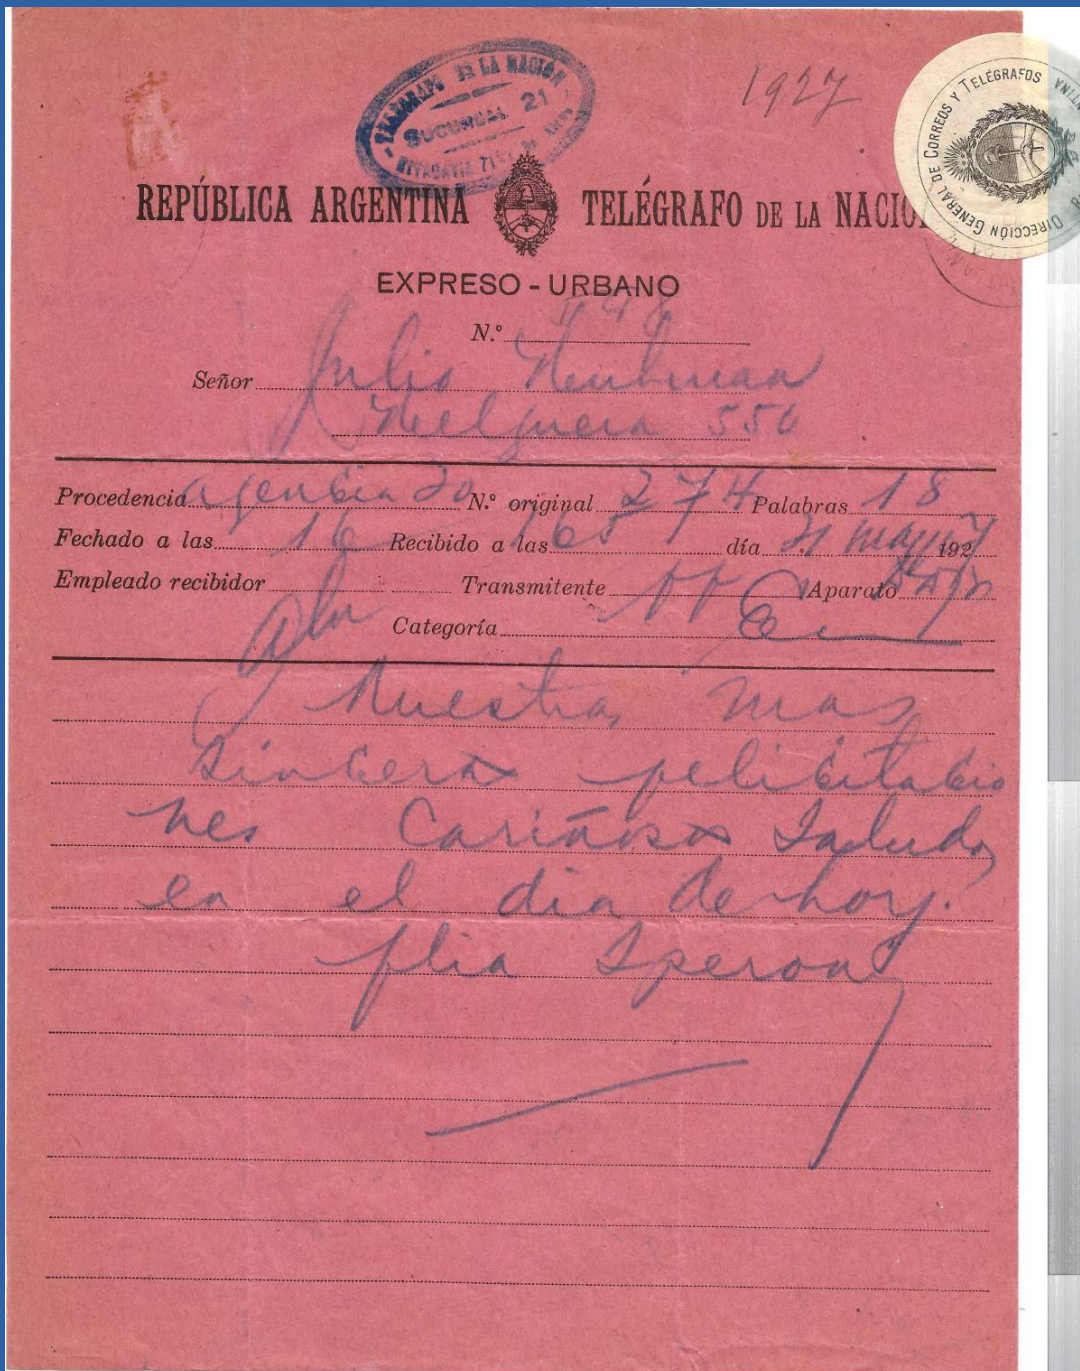 TELÉGRAFO DE LA NACIÓN
SUCURSAL 21
RIVADAVIA
1927
DIRECCIÓN GENERAL DE CORREOS Y TELÉGRAFOS
REPÚBLICA ARGENTINA TELÉGRAFO DE LA NACIO
EXPRESO - URBANO
N.º
Señor Julio
550
Procedencia N.º original 274 Palabras 18
Fechado a las 16 Recibido a las 16 día 21 mayo 1927
Empleado recibidor Transmitente Aparato
Categoría
Nuestras mas
sinceras felicitacio
nes Cariñosos Saludos
en el dia de hoy.
flia Speroni